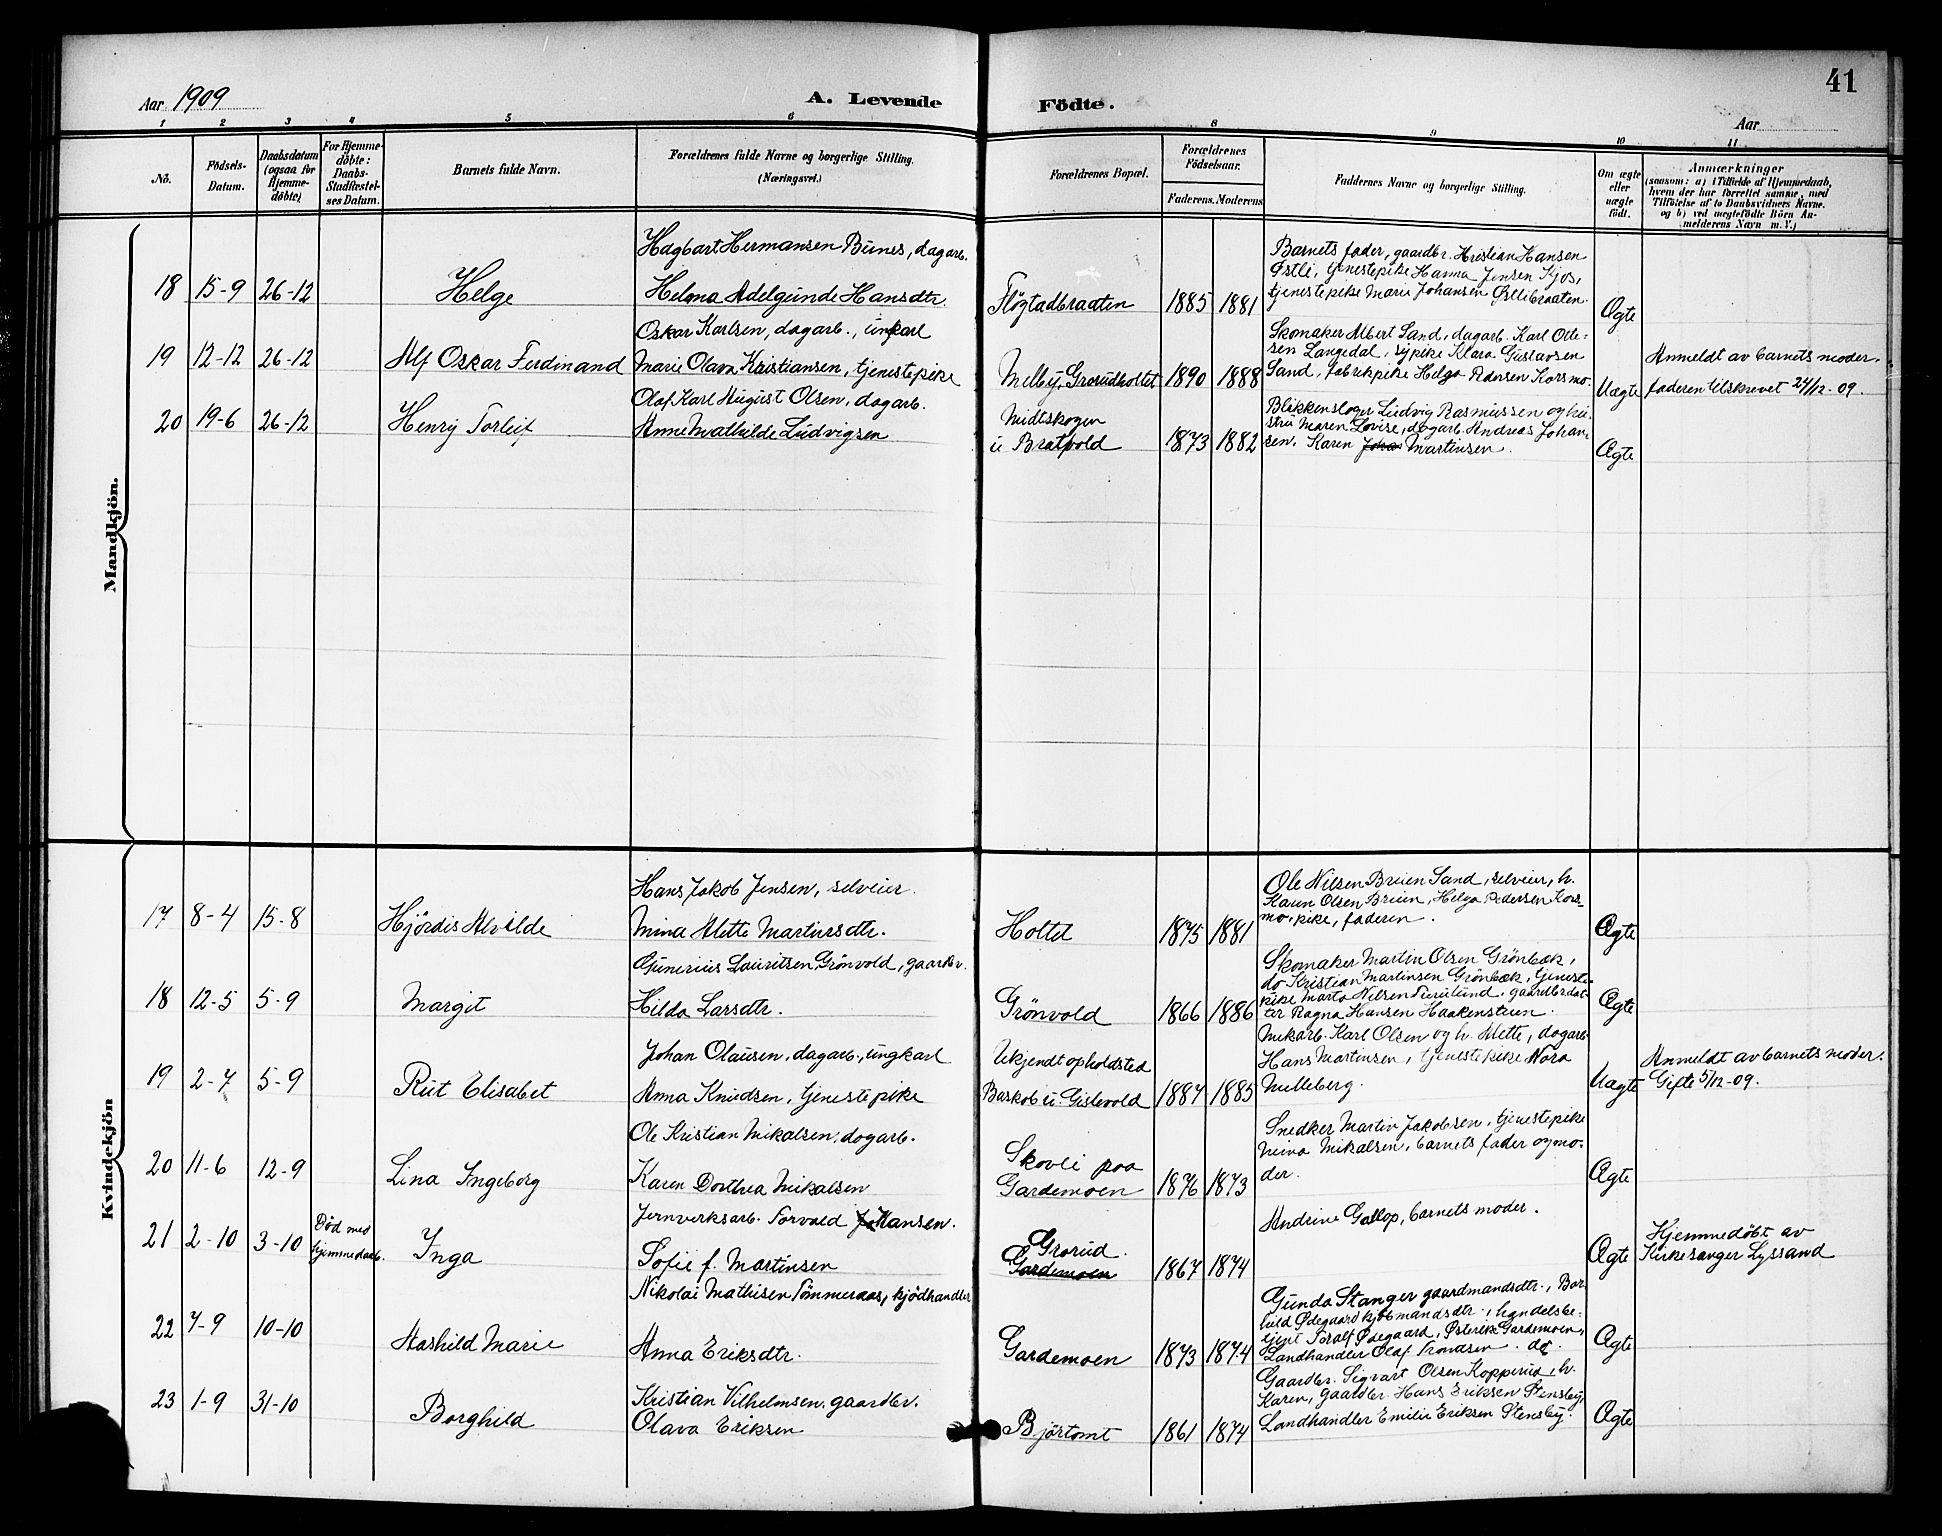 Aar 1909
A. Levende
Födte.
41
Aar
1 2 3 4 5 6
8 9 10 11
No.
Födsels-
Datum.
Daabsdatum
(ogsaa for
Hjemme-
döbte)
For Hjemme-
döbte:
Daabs-
Stadfæstel-
ses Datum.
Barnets fulde Navn.
Forældrenes fulde Navne og borgerlige Stilling.
(Næringsvei.)
Forældrenes Bopæl.
Forældrenes
Födselsaar.
Faderens. Moderens
Faddernes Navne og borgerlige Stilling.
Om ægte
eller
uægte
födt.
Anmærkninger
(saasom: a) i Tilfælde af Hjemmedaab,
hvem der har forrettet samme, med
Tilföielse af to Daabsvidners Navne.
og b) ved uægtefödte Börn An-
melderens Navn m. V.)
Mandkjön.
18 15-9 26-12
Helge
Hagbart Hermansen Bunes, dagarb.
Helma Adelgunde Hansdtr.
Fløgtadbraaten
1885 1881
Barnets fader, gaardbr. Kristian Hansen
Østli, tjenestepike Hanna Jensen Kjos,
tjenestepike Marie Johansen Østlibraaten.
Ægte
19 12-12 26-12
Alf Oskar Ferdinand
Oskar Karlsen, dagarb., unkarl
Marie Olava Kristiansen, tjenestepike
Melby, Grorudholtet
1890 1888
Skomaker Albert Sand, dagarb. Karl Ole-
sen Langedal, sypike Klara Gustavsen
Sand, fabrikpike Helga Pedersen Korsmo.
Uægte
Anmeldt av barnets moder.
faderen tilskrevet 24/12-09.
20 19-6 26-12
Henry Torleif
Olaf Karl August Olsen, dagarb.
Anne Mathilde Ludvigsen
Midtskogen
u Bratvold
1873 1882
Blikkenslager Ludvig Rasmussen og hu-
stru Maren Lovise, dagarb. Andreas Johan-
sen, Karen Joha Martinsen.
Ægte
Kvindekjön
17 8-4 15-8
Hjördis Alvilde
Hans Jakob Jensen, selveier.
Mina Alette Martinsdtr.
Holtet
1875 1881
Ole Nilsen Breien Sand, selveier, h.
Karen Olsen Breien, Helga Pedersen Kors-
mo, pike, faderen.
Ægte
18 12-5 5-9
Margit
Gunerius Lauritsen Grönvold, gaardbr.
Hilda Larsdtr.
Grönvold
1866 1886
Skomaker Martin Olsen Grönbæk,
do Kristian Martinsen Grönbæk, tjeneste-
pike Marta Nilsen Furulund, gaardbr.dat-
ter Ragna Hansen Haakenstuen.
Ægte
19 2-7 5-9
Rut Elisabet
Johan Olausen, dagarb., ungkarl
Anna Knudsen, tjenestepike
Ukjendt opholdsted
Baskob u. Gislevold
1887 1885
Mekarb. Karl Olsen og h. Alette, dagarb.
Hans Martinsen, tjenestepike Nora
Melleberg.
Uægte
Anmeldt av barnets moder.
Gifte 5/12-09.
20 11-6 12-9
Lina Ingeborg
Ole Kristian Mikalsen, dagarb.
Karen Dorthea Mikalsen
Skovli paa
Gardemoen
1876 1873
Snedker Martin Jakobsen, tjenestepike
Mina Mikalsen, barnets fader og mo-
der.
Ægte
21 2-10 3-10
Död med
hjemmedaab.
Inga
Jernverksarb. Torvald Johansen.
Sofie f. Martinsen
Grorud.
Gardemoen
1867 1874
Andrine Gallop, barnets moder.
Ægte
Hjemmedöbt av
Kirkesanger Lyssand
22 7-9 10-10
Aashild Marie
Nikolai Mathisen Tömmeraas, kjödhandler
Anna Eriksdtr.
Gardemoen
1873 1874
Gunda Stanger gaardmandsdtr., Bor-
hild Ødegaard kjöbmandsdtr., handelsbe-
tjent Toralf Ødegaard, Østerike Gardemoen,
Landhandler Olaf Trondsen. do.
Ægte
23 1-9 31-10
Borghild
Kristian Vilhelmsen, gaardbr.
Olava Eriksen
Bjørtomt
1861 1874
Gaardbr. Sigvart Olsen Kopperud, h.
Karen, gaardbr. Hans Eriksen Stensby,
Landhandler Emilie Eriksen Stensby.
Ægte